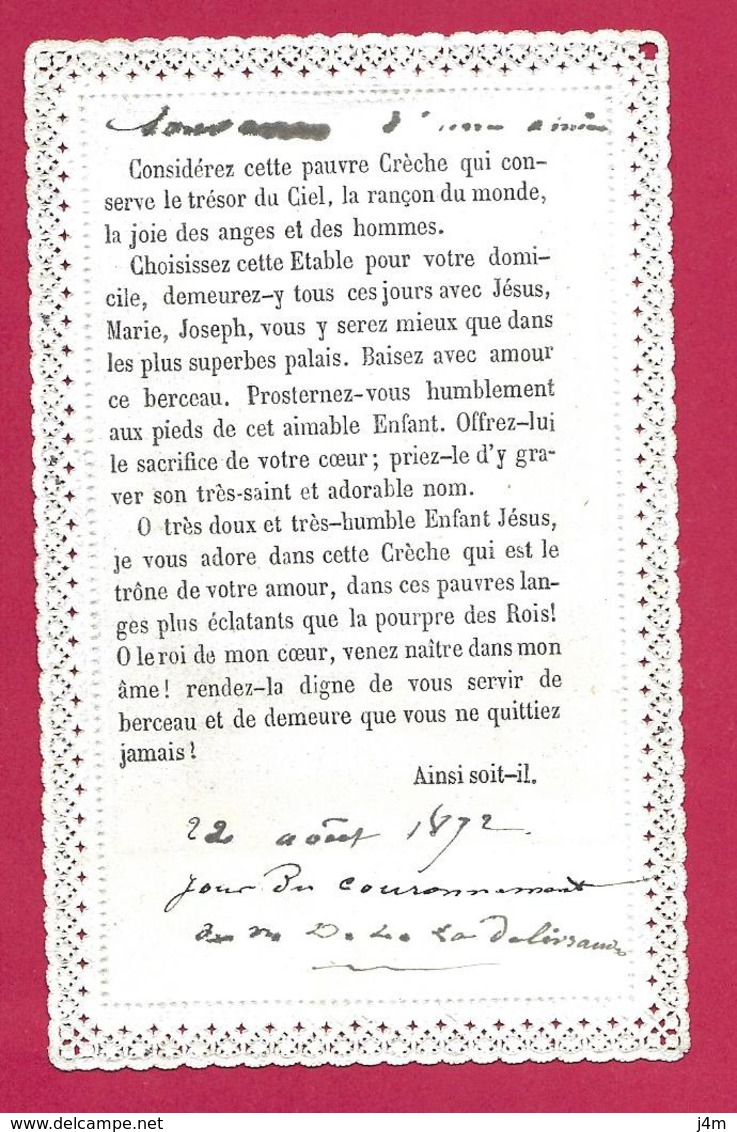 Souvenir d'une amie
Considérez cette pauvre Crèche qui con-
serve le trésor du Ciel, la rançon du monde,
la joie des anges et des hommes.
Choisissez cette Etable pour votre domi-
cile, demeurez-y tous ces jours avec Jésus,
Marie, Joseph, vous y serez mieux que dans
les plus superbes palais. Baisez avec amour
ce berceau. Prosternez-vous humblement
aux pieds de cet aimable Enfant. Offrez-lui
le sacrifice de votre cœur; priez-le d'y gra-
ver son très-saint et adorable nom.
O très doux et très-humble Enfant Jésus,
je vous adore dans cette Crèche qui est le
trône de votre amour, dans ces pauvres lan-
ges plus éclatants que la pourpre des Rois!
O le roi de mon cœur, venez naître dans mon
âme! rendez-la digne de vous servir de
berceau et de demeure que vous ne quittiez
jamais!
Ainsi soit-il.
22 août 1872
jour du couronnement
de n D. de La Délivrande
delcampe.net
j4m